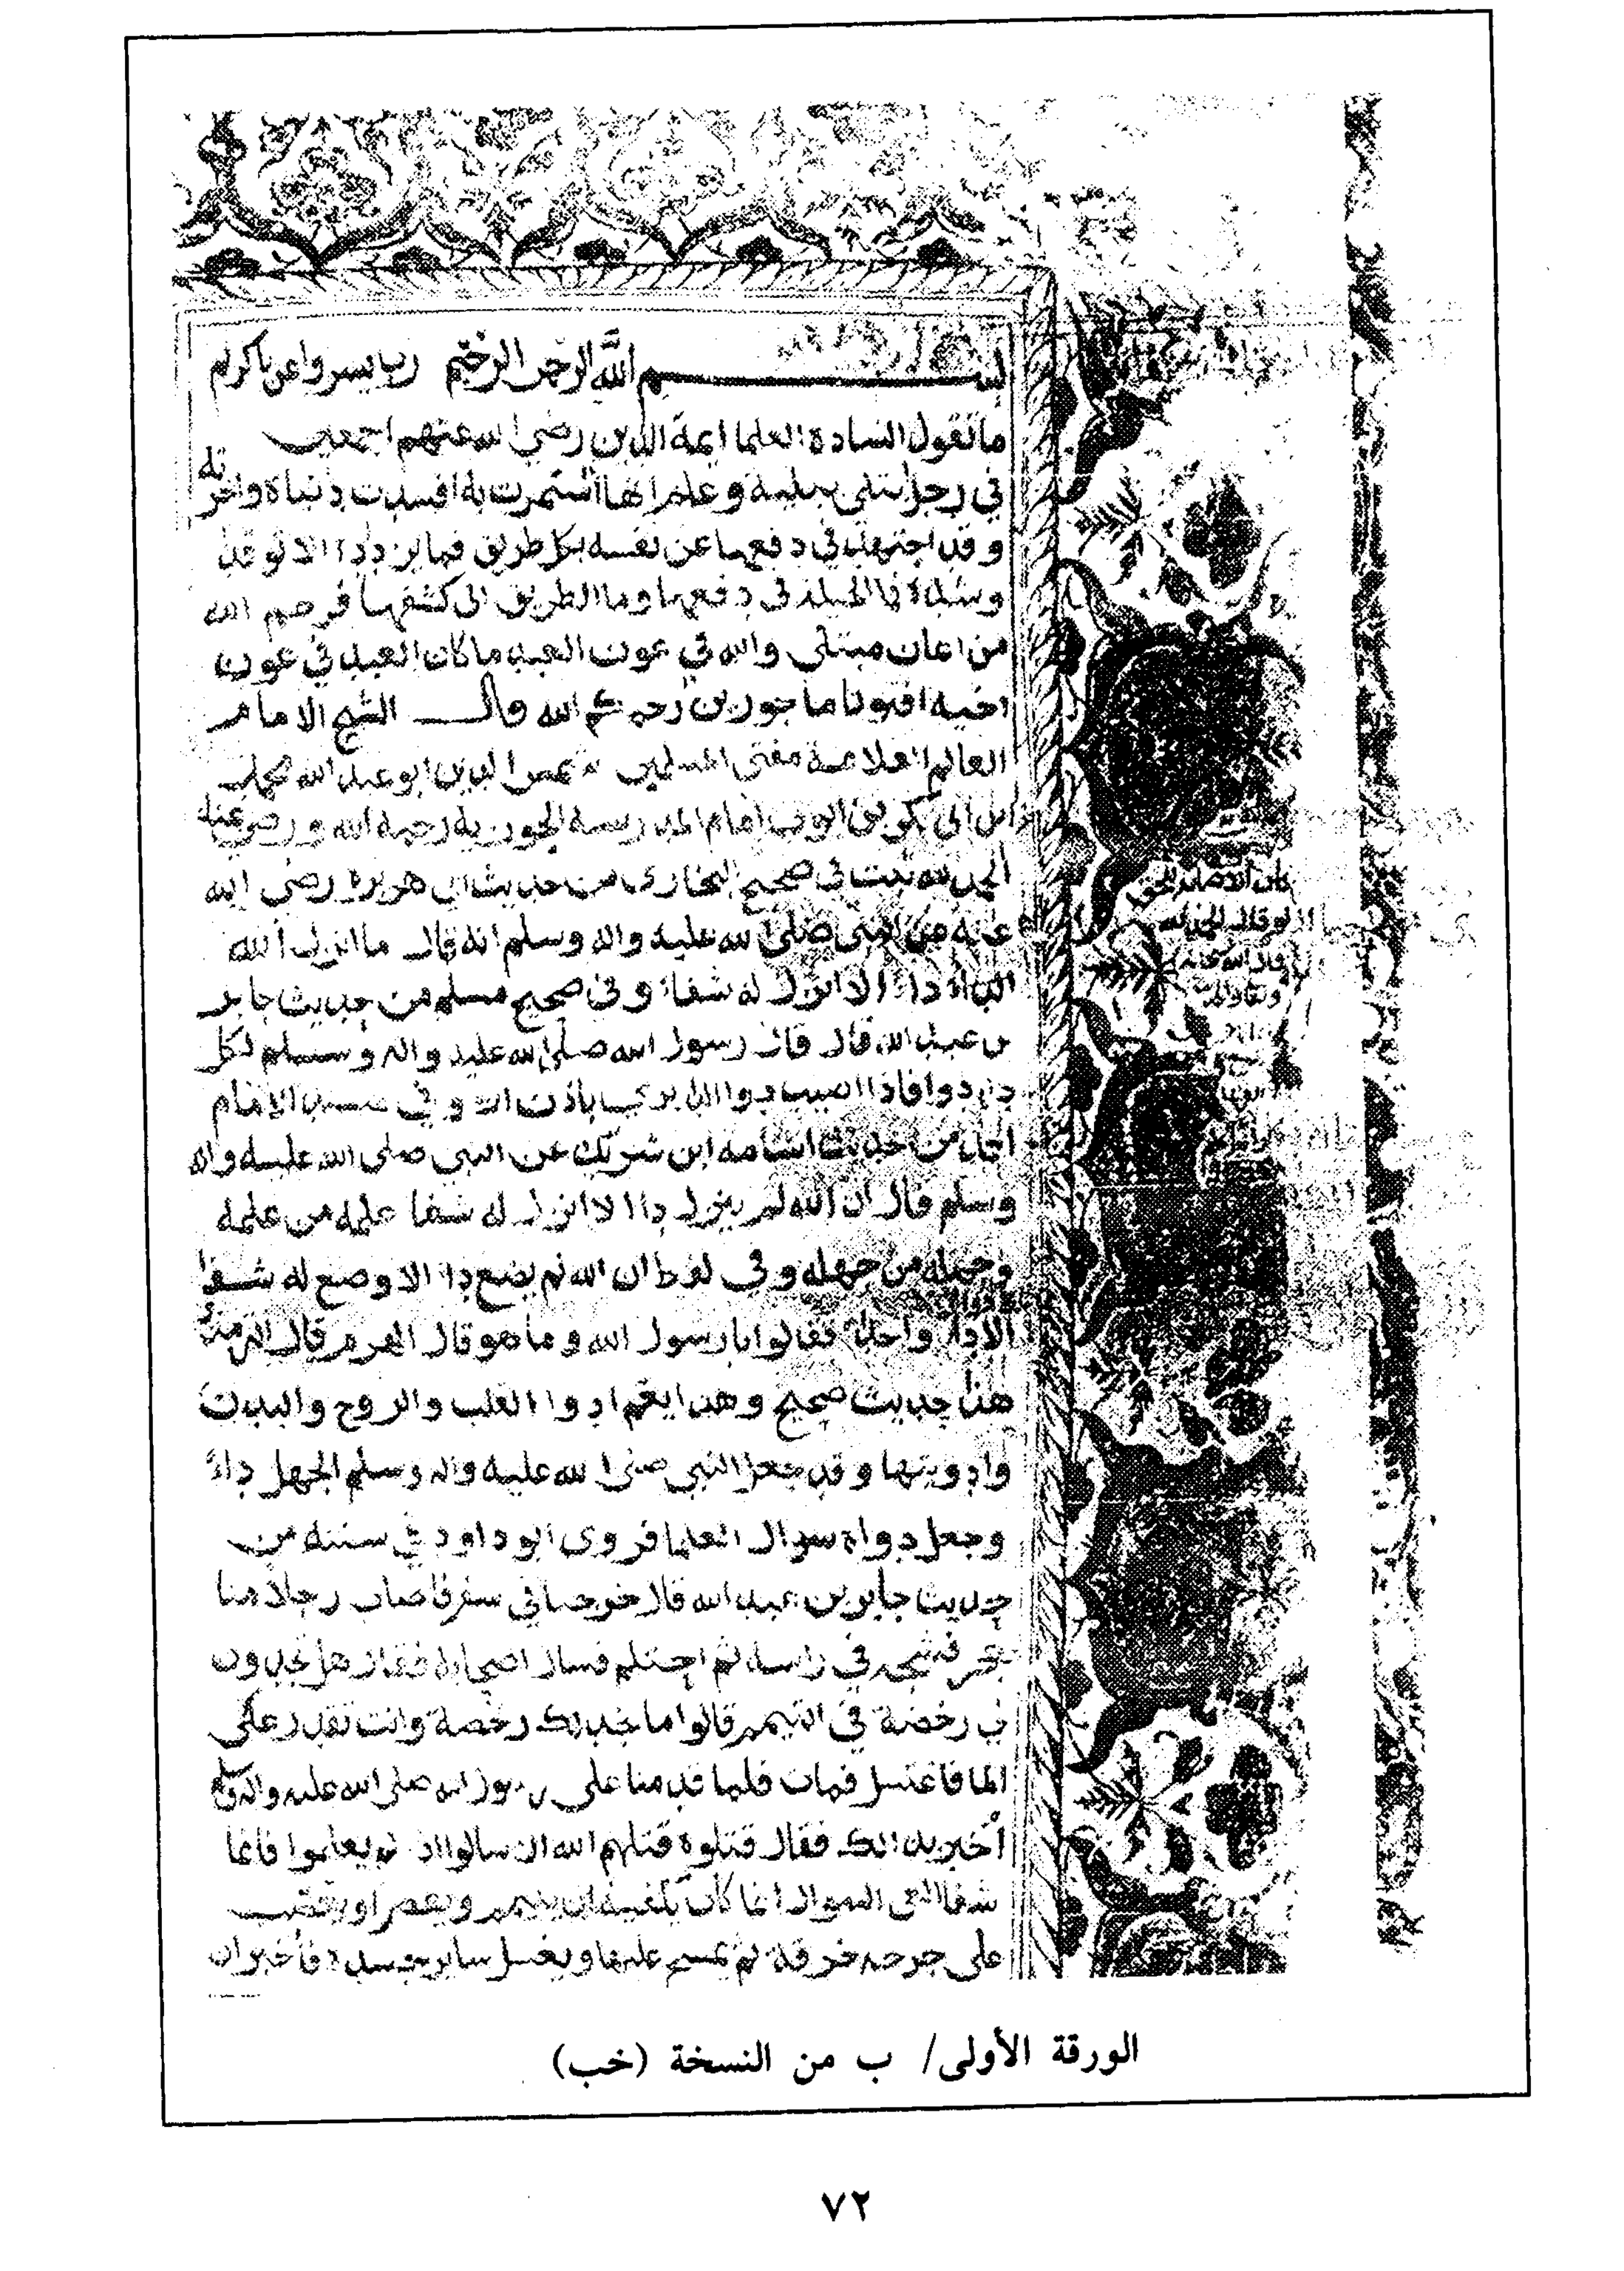 بسم الله الرحمن الرحيم رب يسر واعن ياكريم
ما تقول السادة العلما ايمة الدين رضي الله عنهم اجمعين
في رجل ابتلي ببلية وعلم انها استمرت به افسدت دنياه واخرته
وقد اجتهد في دفعها عن نفسه بكل طريق فما يزداد الا توقدا
وشدة فما الحيلة في دفعها وما الطريق الى كشفها فرحم الله
من اعان مبتلى والله في عون العبد ما كان العبد في عون
اخيه افتونا ماجورين رحمكم الله قال الشيخ الامام
العالم العلامة مفتي المسلمين شمس الدين ابو عبد الله محمد
ابن ابي بكر بن ايوب امام المدرسة الجوزية رحمه الله ورضي عنه
الحمد لله ثبت في صحيح البخاري من حديث ابي هريرة رضي الله
عنه عن النبي صلى الله عليه واله وسلم انه قال ما انزل الله
داء الا انزل له شفاء وفي صحيح مسلم من حديث جابر
بن عبد الله قال قال رسول الله صلى الله عليه واله وسلم لكل
داء دوا فاذا اصيب دوا الداء برى باذن الله وفي مسند الامام
احمد من حديث اسامة ابن شريك عن النبي صلى الله عليه واله
وسلم قال ان الله لم ينزل داا الا انزل له شفا علمه من علمه
وجهله من جهله وفي لفظ ان الله لم يضع داا الا وضع له شفا
الا داء واحدا فقالوا يا رسول الله وما هو قال الهرم قال الترمذي
هذا حديث صحيح وهذا يعم ادوا القلب والروح والبدن
وادويتها وقد جعل النبي صلى الله عليه واله وسلم الجهل داء
وجعل دواه سوال العلما فروى ابو داود في سننه من
حديث جابر بن عبد الله قال خرجنا في سفر فاصاب رجلا منا
حجر فشجه في راسه ثم احتلم فسال اصحابه فقال هل تجدون
لي رخصة في التيمم قالوا ما نجد لك رخصة وانت تقدر على
الما فاغتسل فمات فلما قدمنا على رسول الله صلى الله عليه واله وسلم
أخبر بذلك فقال قتلوه قتلهم الله الا سالوا اذ لم يعلموا فانما
شفا العي السوال انما كان يكفيه ان يتيمم ويعصر او يعصب
على جرحه خرقة ثم يمسح عليها ويغسل ساير جسده فأخبر ان
الورقة الأولى/ ب من النسخة (خب)
٧٢